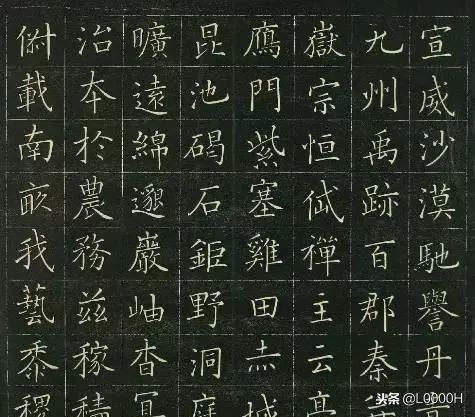 宣威沙漠馳譽丹
九州禹跡百郡秦
嶽宗恒岱禪主云亭
鴈門紫塞雞田赤城
昆池碣石鉅野洞庭
曠遠綿邈巖岫杳冥
治本於農務茲稼穡
俶載南畝我藝黍稷
头条 @L0000H